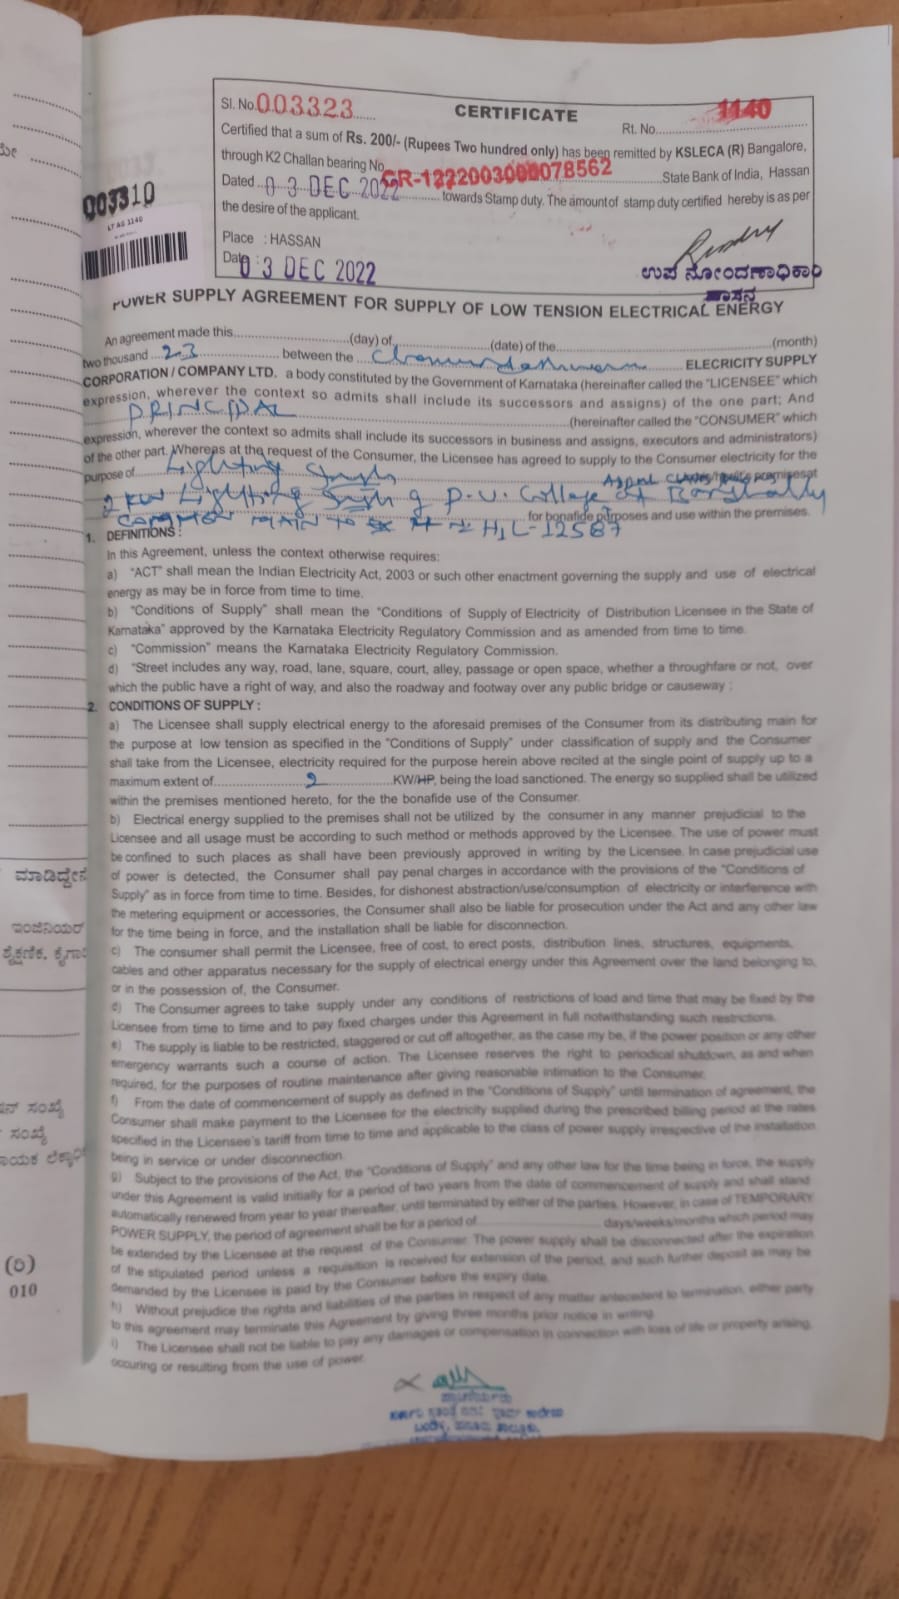 Sl. No. 003323
CERTIFICATE
Rt. No. 1140
Certified that a sum of Rs. 200/- (Rupees Two hundred only) has been remitted by KSLECA (R) Bangalore,
through K2 Challan bearing No. CR-1222003000078562 State Bank of India, Hassan
Dated 03 DEC 2022 towards Stamp duty. The amount of stamp duty certified hereby is as per
the desire of the applicant.
Place : HASSAN
Date : 03 DEC 2022
ಉಪ ನೋಂದಣಾಧಿಕಾರಿ
ಹಾಸನ
003310
LT AG 1140
POWER SUPPLY AGREEMENT FOR SUPPLY OF LOW TENSION ELECTRICAL ENERGY
An agreement made this (day) of (date) of the (month)
two thousand 23 between the ELECRICITY SUPPLY
CORPORATION / COMPANY LTD. a body constituted by the Government of Karnataka (hereinafter called the "LICENSEE" which
expression, wherever the context so admits shall include its successors and assigns) of the one part; And
PRINCIPAL (hereinafter called the "CONSUMER" which
expression, wherever the context so admits shall include its successors in business and assigns, executors and administrators)
of the other part. Whereas at the request of the Consumer, the Licensee has agreed to supply to the Consumer electricity for the
purpose of Lighting premises at
2 KW Lighting of P.U. College at
COMMON MAIN TO HJL-12587 for bonafide purposes and use within the premises.
1. DEFINITIONS :
In this Agreement, unless the context otherwise requires:
a) "ACT" shall mean the Indian Electricity Act, 2003 or such other enactment governing the supply and use of electrical
energy as may be in force from time to time.
b) "Conditions of Supply" shall mean the "Conditions of Supply of Electricity of Distribution Licensee in the State of
Karnataka" approved by the Karnataka Electricity Regulatory Commission and as amended from time to time.
c) "Commission" means the Karnataka Electricity Regulatory Commission.
d) "Street includes any way, road, lane, square, court, alley, passage or open space, whether a throughfare or not, over
which the public have a right of way, and also the roadway and footway over any public bridge or causeway ;
2. CONDITIONS OF SUPPLY :
a) The Licensee shall supply electrical energy to the aforesaid premises of the Consumer from its distributing main for
the purpose at low tension as specified in the "Conditions of Supply" under classification of supply and the Consumer
shall take from the Licensee, electricity required for the purpose herein above recited at the single point of supply up to a
maximum extent of 2 KW/HP, being the load sanctioned. The energy so supplied shall be utilized
within the premises mentioned hereto, for the the bonafide use of the Consumer.
b) Electrical energy supplied to the premises shall not be utilized by the consumer in any manner prejudicial to the
Licensee and all usage must be according to such method or methods approved by the Licensee. The use of power must
be confined to such places as shall have been previously approved in writing by the Licensee. In case prejudicial use
of power is detected, the Consumer shall pay penal charges in accordance with the provisions of the "Conditions of
Supply" as in force from time to time. Besides, for dishonest abstraction/use/consumption of electricity or interference with
the metering equipment or accessories, the Consumer shall also be liable for prosecution under the Act and any other law
for the time being in force, and the installation shall be liable for disconnection.
c) The consumer shall permit the Licensee, free of cost, to erect posts, distribution lines, structures, equipments,
cables and other apparatus necessary for the supply of electrical energy under this Agreement over the land belonging to,
or in the possession of, the Consumer.
d) The Consumer agrees to take supply under any conditions of restrictions of load and time that may be fixed by the
Licensee from time to time and to pay fixed charges under this Agreement in full notwithstanding such restrictions.
e) The supply is liable to be restricted, staggered or cut off altogether, as the case my be, if the power position or any other
emergency warrants such a course of action. The Licensee reserves the right to periodical shutdown, as and when
required, for the purposes of routine maintenance after giving reasonable intimation to the Consumer.
f) From the date of commencement of supply as defined in the "Conditions of Supply" until termination of agreement, the
Consumer shall make payment to the Licensee for the electricity supplied during the prescribed billing period at the rates
specified in the Licensee's tariff from time to time and applicable to the class of power supply irrespective of the installation
being in service or under disconnection.
g) Subject to the provisions of the Act, the "Conditions of Supply" and any other law for the time being in force, the supply
under this Agreement is valid initially for a period of two years from the date of commencement of supply and shall stand
automatically renewed from year to year thereafter, until terminated by either of the parties. However, in case of TEMPORARY
POWER SUPPLY, the period of agreement shall be for a period of days/weeks/months which period may
be extended by the Licensee at the request of the Consumer. The power supply shall be disconnected after the expiration
of the stipulated period unless a requisition is received for extension of the period, and such further deposit as may be
demanded by the Licensee is paid by the Consumer before the expiry date.
h) Without prejudice the rights and liabilities of the parties in respect of any matter antecedent to termination, either party
to this agreement may terminate this Agreement by giving three months prior notice in writing.
i) The Licensee shall not be liable to pay any damages or compensation in connection with loss of life or property arising,
occuring or resulting from the use of power.
ಮಾಡಿದ್ದೇನೆ
ಇಂಜಿನಿಯರ್
ಶೈಕ್ಷಣಿಕ, ಕೈಗಾ
ಸಂಖ್ಯೆ
ಸಂಖ್ಯೆ
(ರಿ)
010